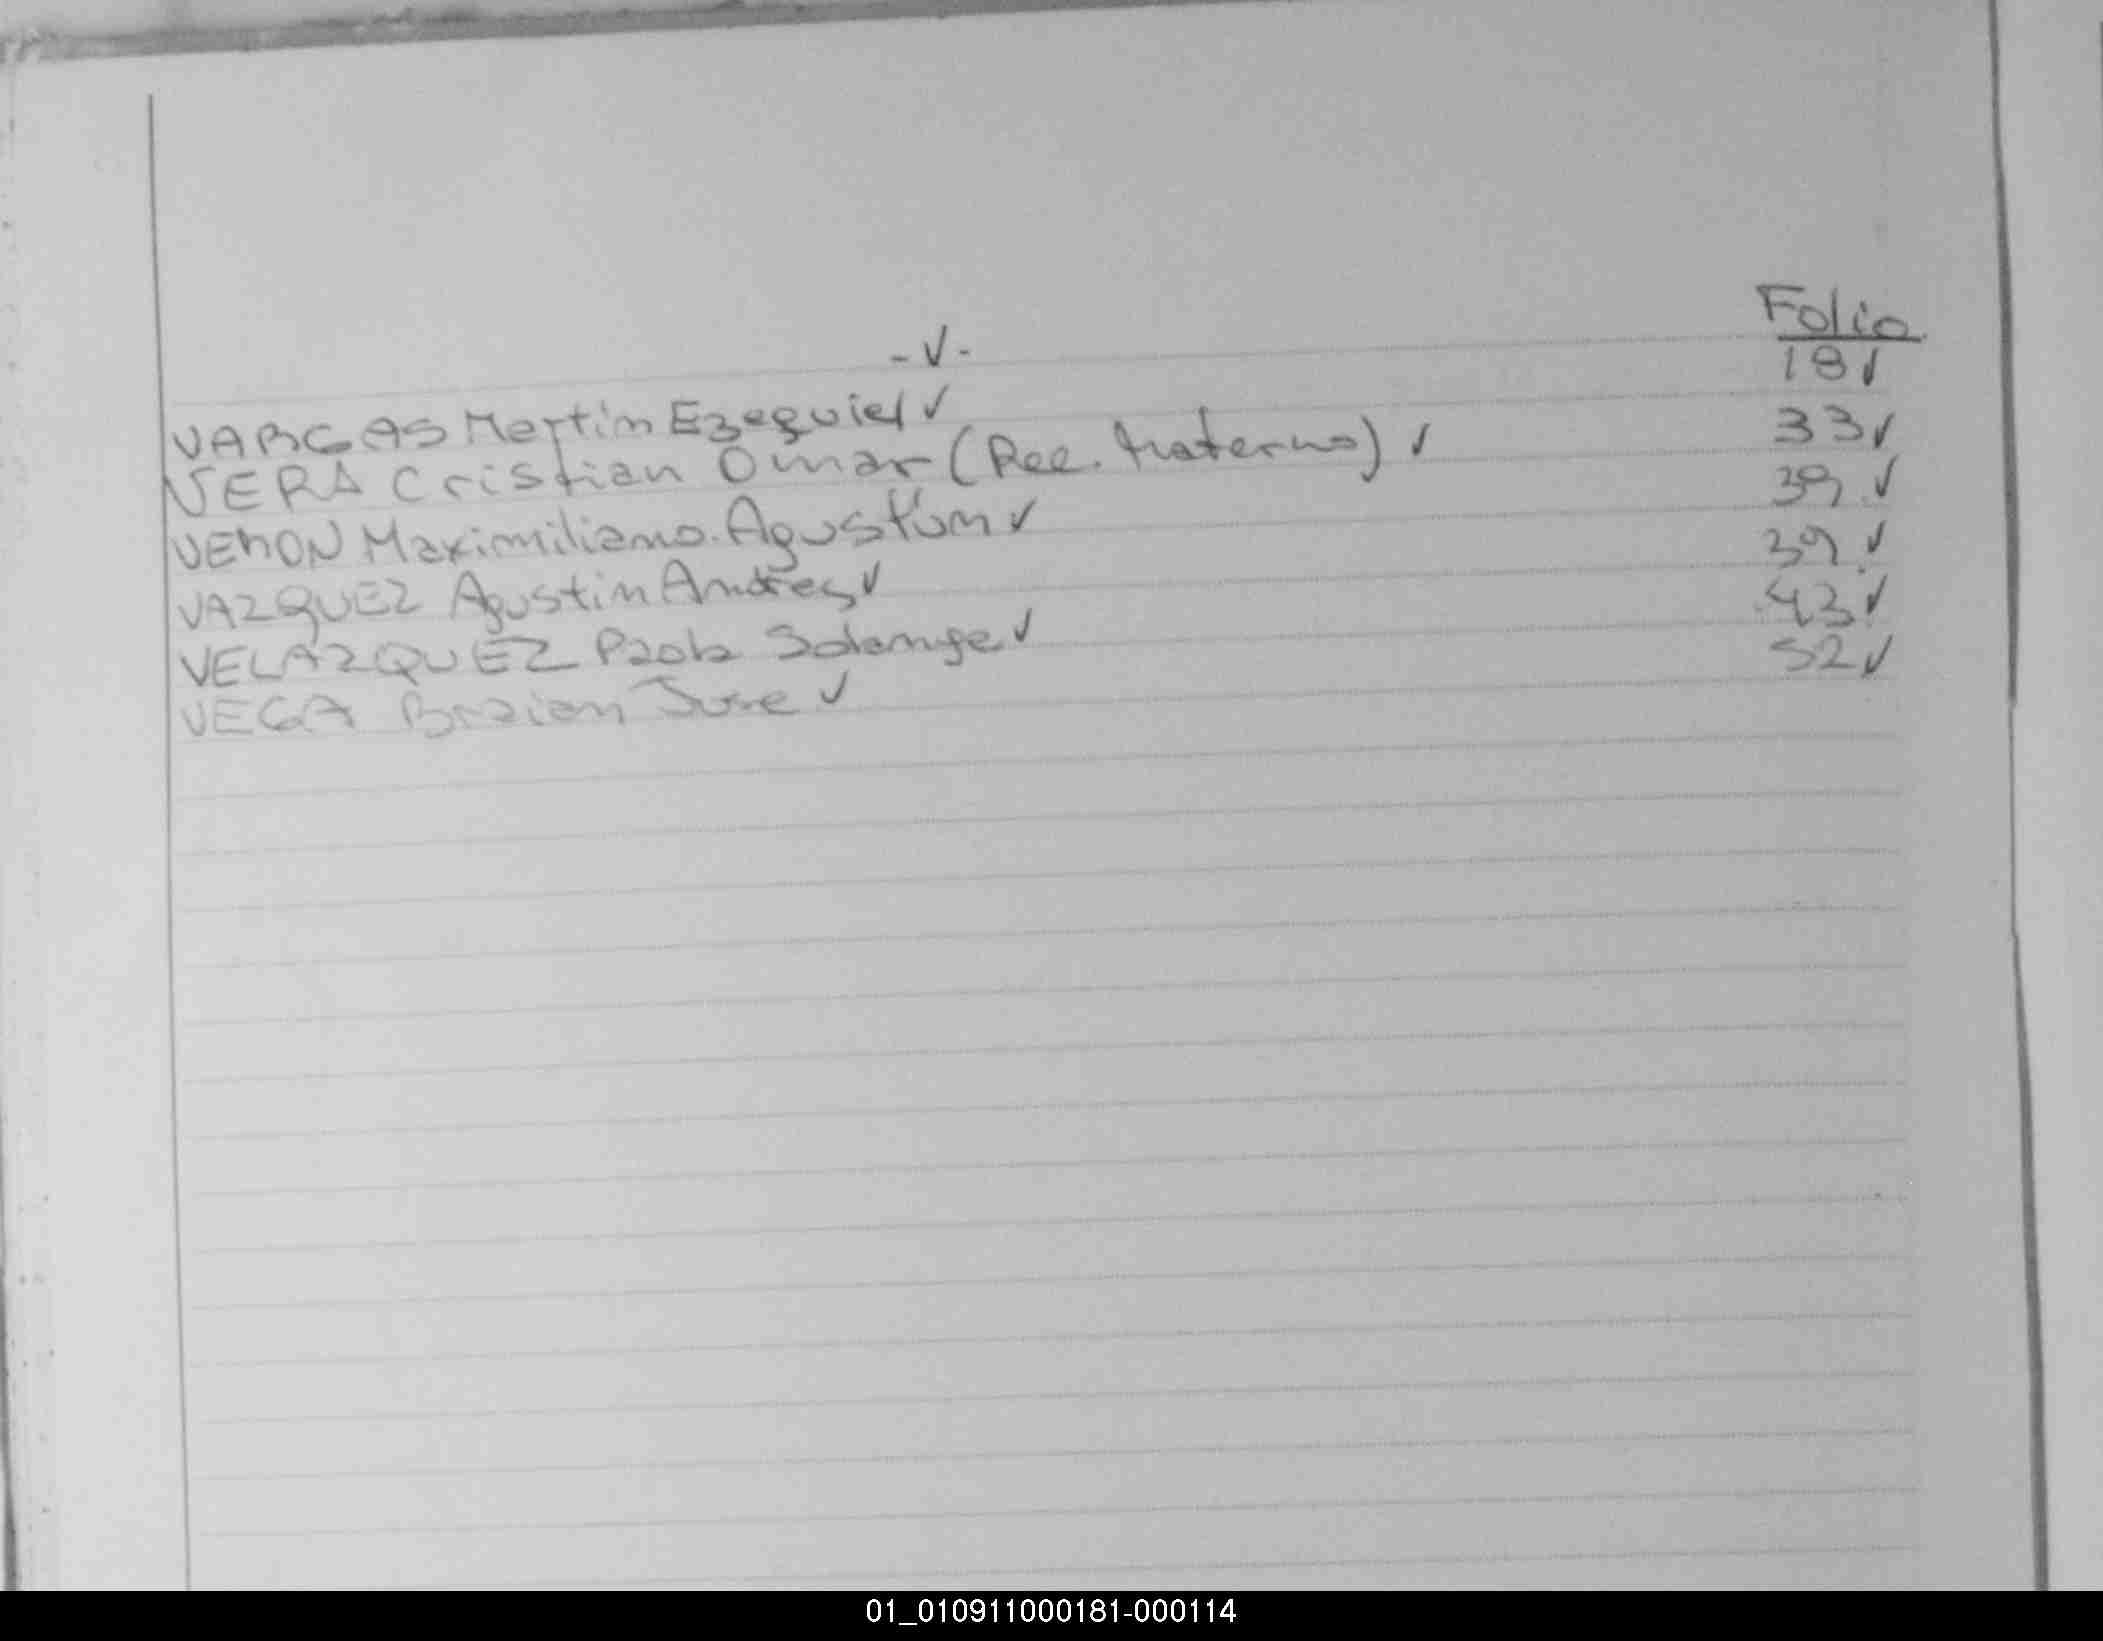 Folio
- V -
VARGAS Martin Ezequiel ✓ 18 ✓
VERA Cristian Omar (Rec. Materno) ✓ 33 ✓
VERON Maximiliano Agustin ✓ 39 ✓
VAZQUEZ Agustin Andres ✓ 39 ✓
VELAZQUEZ Paola Solange ✓ 43 ✓
VEGA Braian Jose ✓ 52 ✓
01_010911000181-000114